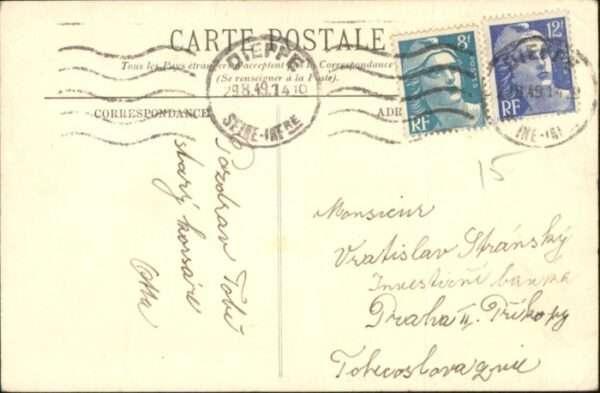 CARTE POSTALE
Tous les Pays étrangers n'acceptent pas la Correspondance
(Se renseigner à la Poste).
CORRESPONDANCE
ADR
DIEPPE
29.8.49. 1410
SEINE-INFRE
8f
RF
12F
RF
DIEPPE
29.8.49. 1410
INE-INF
15
Pozdrav Tobě
starý korsáre
Ota
Monsieur
Vratislav Stránský
Investiční banka
Praha II. Příkopy
Tchecoslovaquie